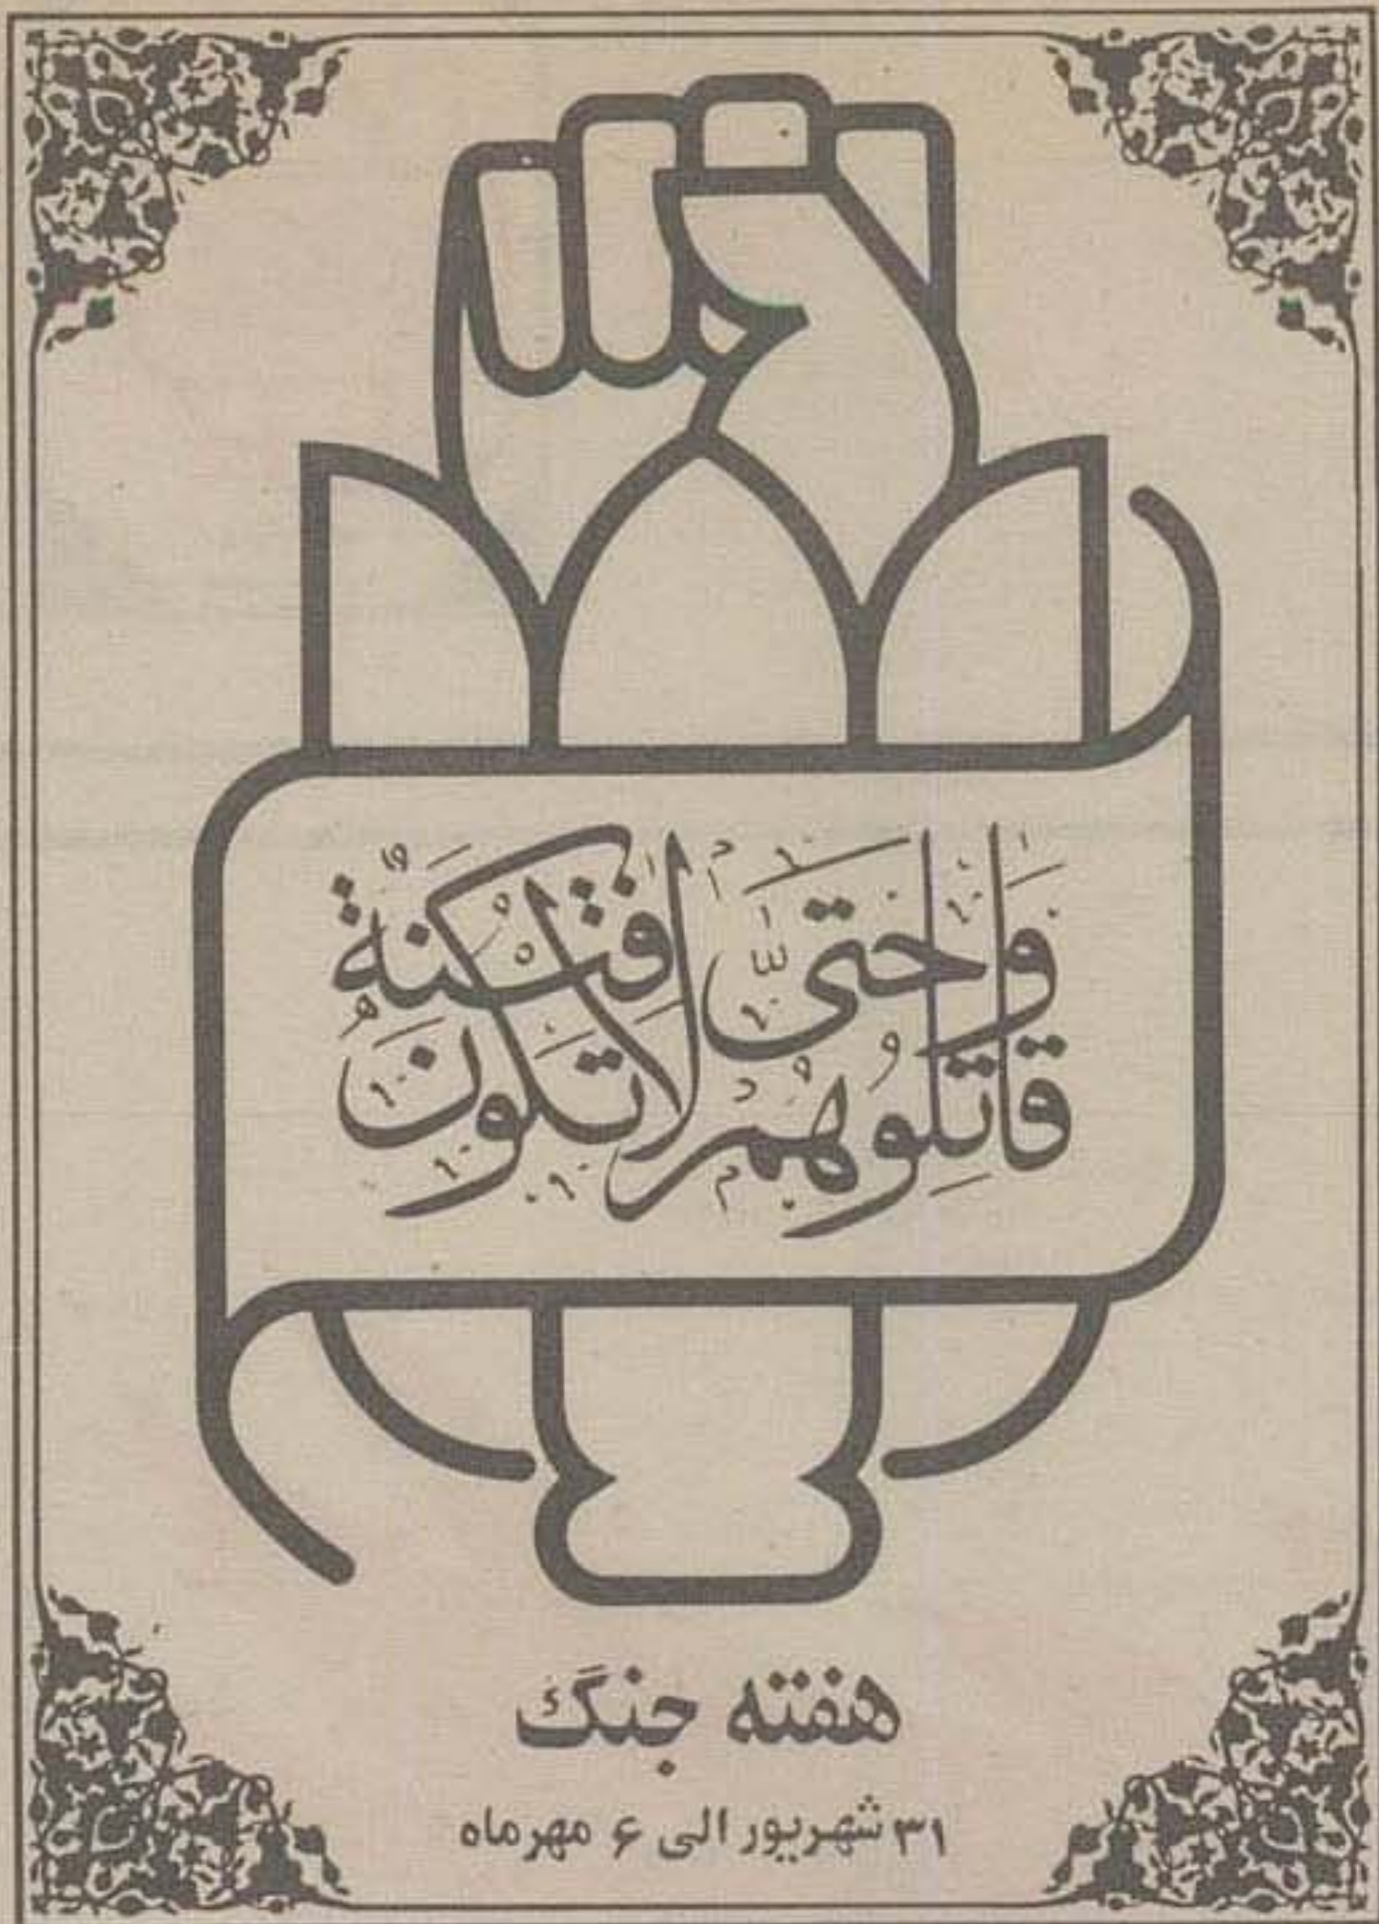 وَقَاتِلُوهُمْ حَتَّىٰ لَا تَكُونَ فِتْنَةٌ
هفته جنگ
۳۱ شهریور الی ۶ مهرماه